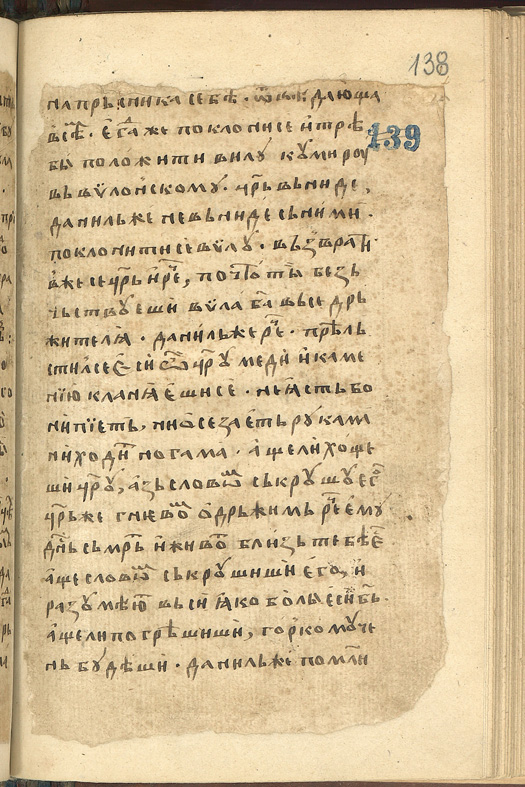 138
139
на прѣсника себѣ · ѿ
всѣ · егда же поклони се и трѣ
бы положити вилу кумироу
въ вѵлонскому · црь въниде,
данильже невъниде сьними ·
поклонити се вѵлу · възврати
вже се црь и рче, почто ты безь
чьствуеши вѵла ба высе дрь
жителꙗ · данильже рче · прѣль
стилсе еси ѡ црꙋ меди и каме
нїю кланꙗеши се · не ꙗсть бо
ни пїеть, ни осезаеть рукама
ни ходи ногама · аще ли хоще
ши црꙋ, азь словѡ съкрꙋшу ег
црьже гнѣвѡ одрьжимь рче ему
днь сьмрь и живо близь тебѣ е
аще словѡ съкрꙋшиши его, и
разумѣю вьси ꙗко боль еси бь ·
аще ли погрѣшиши, горко муче
нь будеши · данильже помли